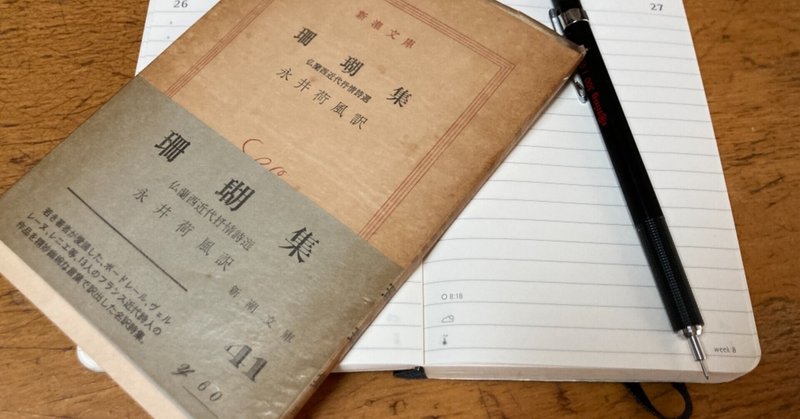 26
27
新潮文庫
珊瑚集
仏蘭西近代抒情詩選
永井荷風訳
珊瑚集
仏蘭西近代抒情詩選
永井荷風訳
新潮文庫
若き著者が愛誦した、ボードレール、ヴェル
レーヌ、レニエ等、13人のフランス近代詩人の
作品を精妙巌密な言葉で訳出した名訳詩集。
41
60
8:18
week 8